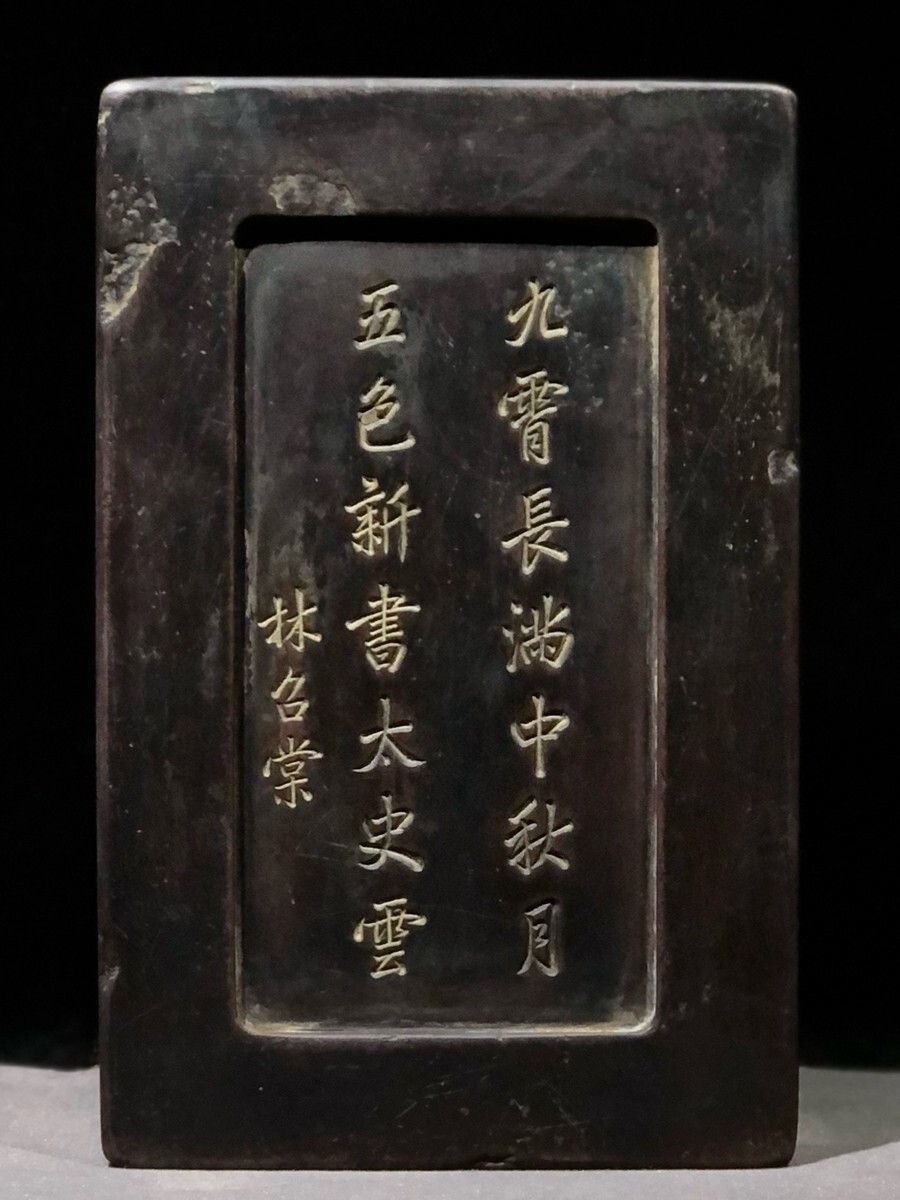 九霄長滿中秋月
五色新書太史雲
林召棠